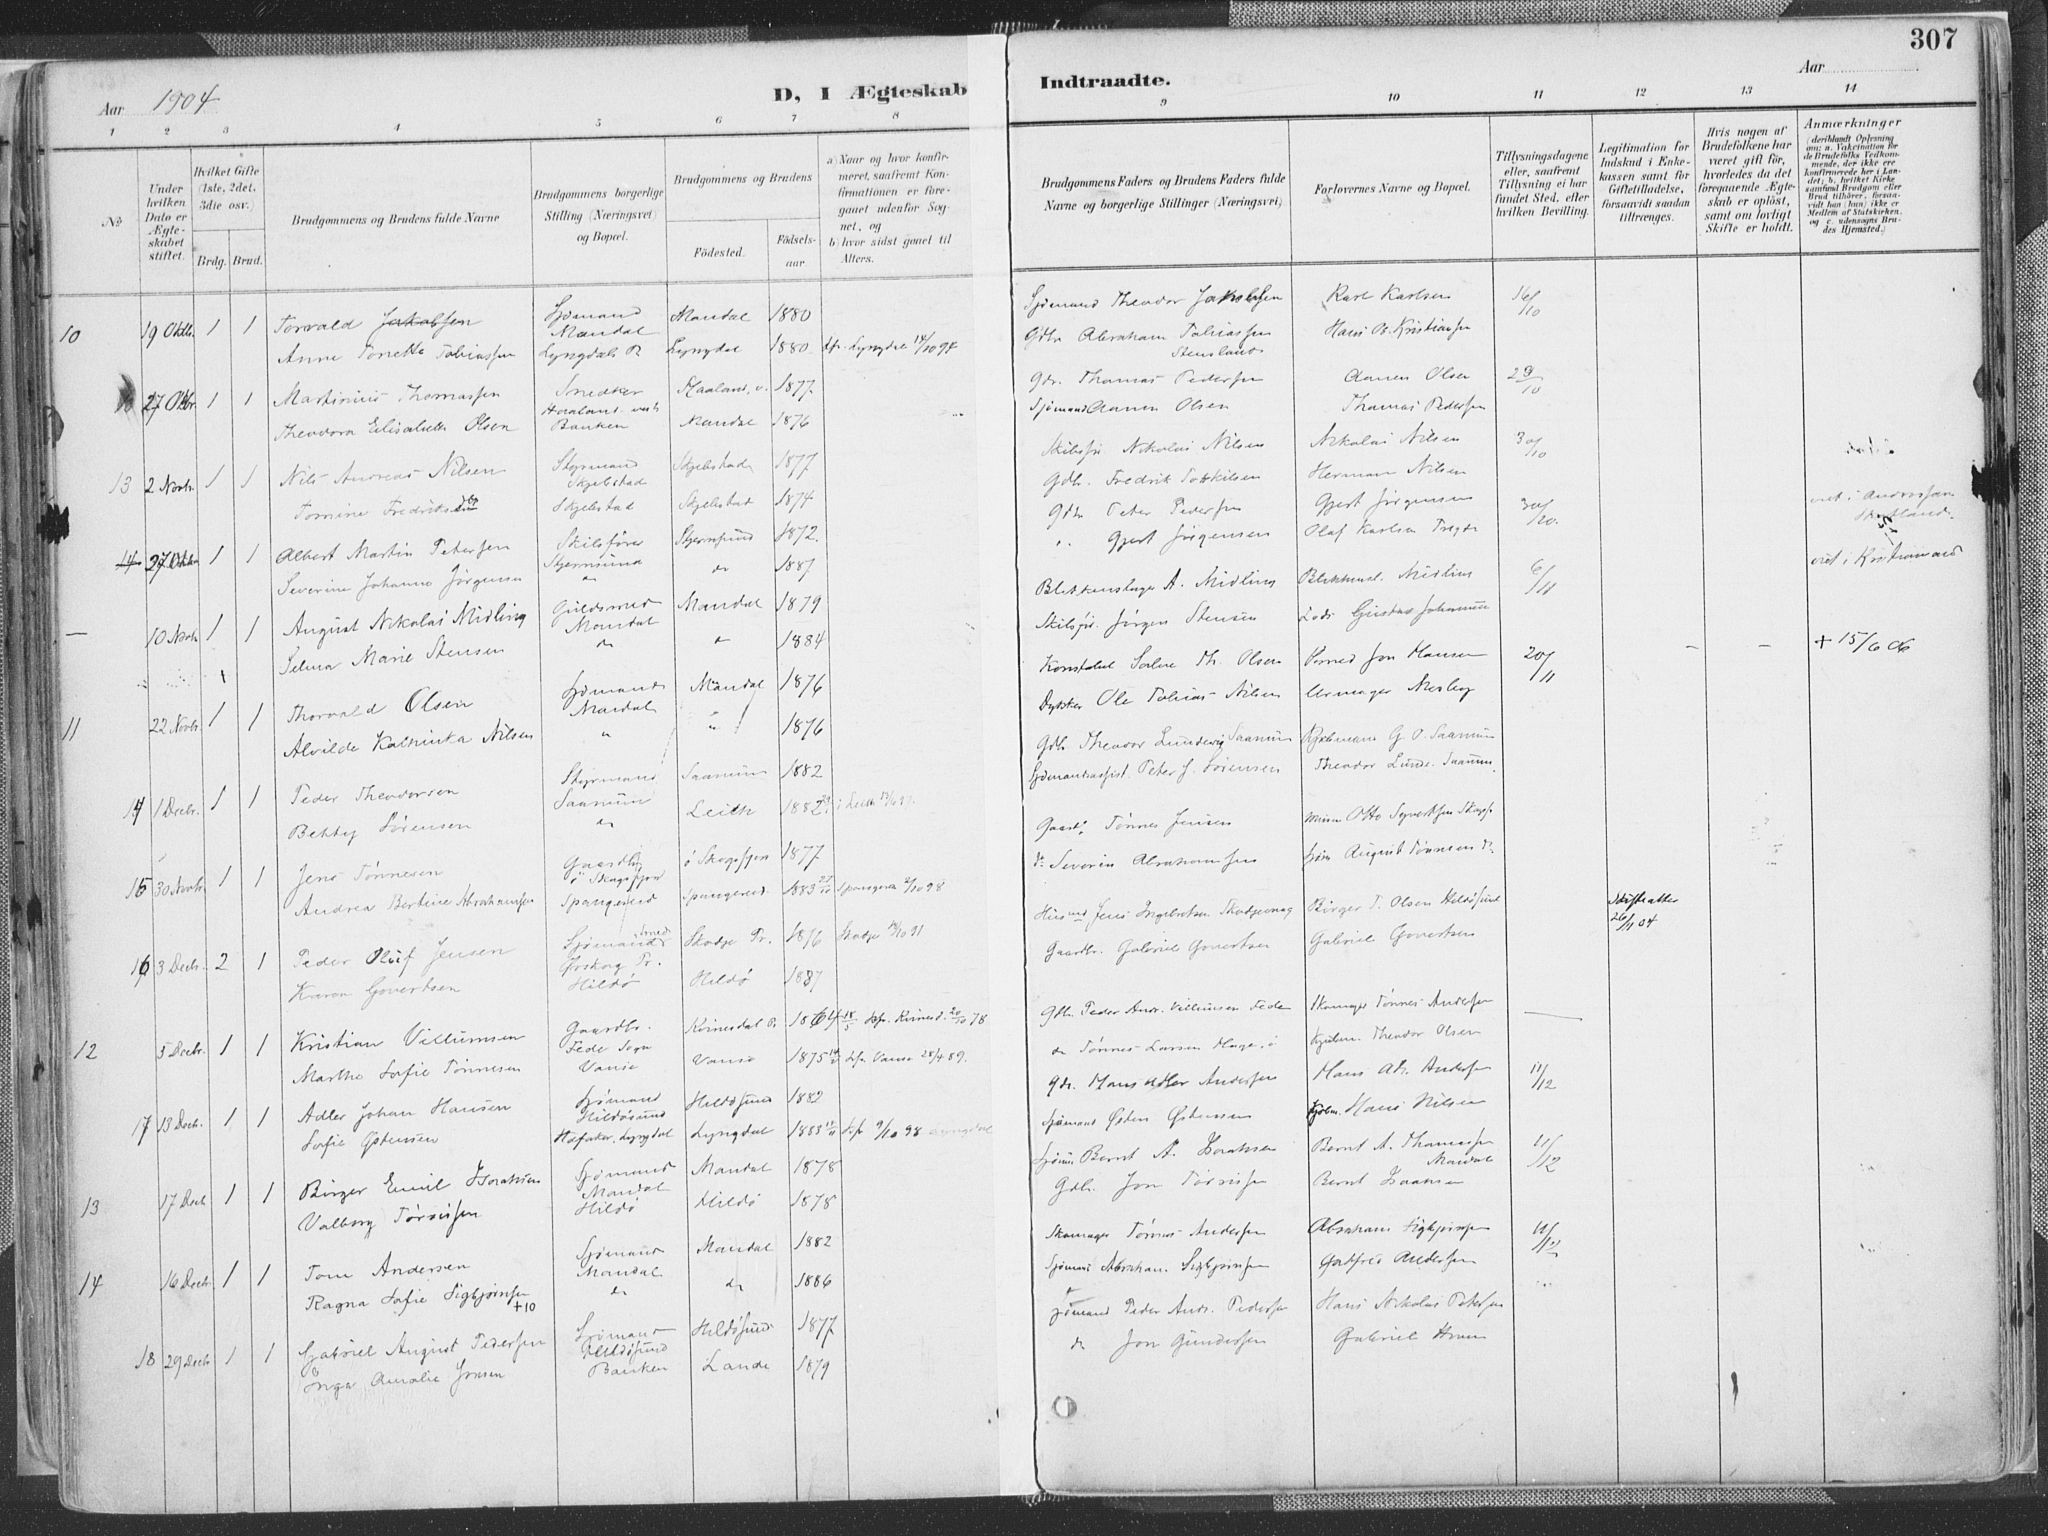 307
Aar 1904
D, I Ægteskab Indtraadte.
Aar
1 2 3 4 5 6 7 8 9 10 11 12 13 14
No
Under hvilken Dato er Ægteskabet stiftet.
Hvilket Gifte (1ste, 2det, 3die osv.)
Brdg. Brud.
Brudgommens og Brudens fulde Navne
Brudgommens borgerlige Stilling (Næringsvei) og Bopæl.
Brudgommens og Brudens
Födested. Födselsaar.
a) Naar og hvor konfirmeret, saafremt Konfirmationen er foregaaet udenfor Sognet, og
b) hvor sidst gaaet til Alters.
Brudgommens Faders og Brudens Faders fulde Navne og borgerlige Stillinger (Næringsvei)
Forlovernes Navne og Bopæl.
Tillysningsdagene eller, saafremt Tillysning ei har fundet Sted, efter hvilken Bevilling.
Legitimation for Indskud i Enkekassen samt for Giftetilladelse, forsaavidt saadan tiltrænges.
Hvis nogen af Brudefolkene har været gift för, hvorledes da det foregaaende Ægteskab er oplöst, samt om lovligt Skifte er holdt.
Anmærkninger
(deriblandt Oplysning om: a. Vakcination for de Brudefolks Vedkommende, der ikke ere konfirmerede her i Landet; b. hvilket Kirkesamfund Brudgom eller Brud tilhörer, forsaavidt han (hun) ikke er Medlem af Statskirken, og c. udensogns Brudes Hjemsted.)
10 19 Oktbr. 1 1 Torvald Jakobsen Sjømand Mandal Mandal 1880 Sjømand Theodor Jakobsen Karl Karlsen 16/10
Anne Tonette Tobiassen Lyngdals P. Lyngdal 1880 Lyngdal 14/10 94 Gdbr. Abraham Tobiassen Stensland Hans A. Kristiansen
27 Oktbr. 1 1 Martinius Thomassen Snedker Haaland 1877 Gdr. Thomas Pedersen Aanen Olsen 23/10
Theodora Elisabeth Olsen Banken Mandal 1876 Sjømand Aanen Olsen Thomas Pedersen
13 2 Novbr. 1 1 Nils Andreas Nilsen Styrmand Skjebstad Skjebstad 1877 Skibsfr. Nikolai Nilsen Nikolai Nilsen 30/10
Tomine Fredriksen Skjebstad Skjebstad 1874 Gdb. Fredrik Herman Nilsen
14 1 1 Albert Martin Petersen Skibsfører Stjernsund Stjernsund 1872. Gdbr Peter Pedersen Gjert Jörgensen 30/10. viet i
Severine Johanne Jörgensen do do 1887 " Gjert Jörgensen Olaf Karlsen
— 10 Novbr 1 1 August Nikolai Midling Guldsmed Mandal Mandal 1879 Blikkenslager A. Midling Blikkensl. Midling 6/11 viet i Kristiansand
Selma Marie Stensen do " 1884 Skibsfr. Jörgen Stensen Lods Gustav Johannesen
11 22 Novbr. 1 1 Thorvald Olsen Sjømand Mandal Mandal 1876 Konstabel Salve Th. Olsen Jon Hansen 20/11 — — + 15/6 06
Alvilde Kathinka Nilsen " " 1876 Dykker Ole Tobias Nilsen Urmager
14 1 Decbr. 1 1 Peder Theodorsen Styrmand Saanum Saanum 1882 Gdb. Theodor Lundevig Saanum G. O. Saanum
Betty Sörensen do Leith 1882 i Leith Peter J. Sörensen Theodor Lunde. Saanum.
15 30 Novbr. 1 1 Jens Tönnesen Gaardbr. Skogsfjord Skogsfjord 1877 Gaardb. Tönnes Jensen Otto Syvertsen
Andrea Bertine Abrahamsen Spangereid Spangereid 1883 Spangereid 2/10 98 do Severin Abrahamsen August Tönnesen do
16 3 Decbr. 2 1 Peder Oluf Jensen Sjømand Ørskog Pr. Skodje Pr. 1876 Skodje 91 Husmd Jens Ingebrtsen Birger T. Olsen Hildösund Skifteattest 26/1 04
Karen Govertsen Hildö Hildö 1887 Gaardbr. Gabriel Govertsen Gabriel Govertsen
12 5 Decbr. 1 1 Kristian Villumsen Gaardbr. Fede Sogn Kvinesdal Pr 1864 18/5 Kvinesd. 20/10 78 Gdb. Peder Andr. Villumsen Fede Skomager Tönnes Andersen —
Marthe Sofie Tönnesen Vanse Vanse 1875 Vanse 28/4 89. do Tönnes Larsen Hauge Theodor Olsen
17 13 Decbr. 1 1 Adler Johan Hansen Sjømand Hildösund Hildösund 1882 Gdr. Hans Adler Andersen Hans Adr. Andersen 11/12
Sofie Østensen Lyngdal Lyngdal 1883 9/10 98 Lyngdal Sjømand Østen Østensen Hans Nilsen
13 17 Decb 1 1 Birger Emil Isaksen Sjømand Mandal Mandal 1878 Sjömd Bernt A. Isaksen Bernt A. Thomassen Mandal 11/12
Valborg Törrissen Hildö Hildö 1878 Gdb. Jon Törrissen Bernt Isaksen
14 16 Decbr. 1 1 Tom Andersen Sjømand Mandal Mandal 1882 Skomager Tönnes Andersen Abraham Sigbjörnsen 11/12
Ragna Sofie Sigbjörnsen +10 do do 1886 Sjømand Abraham Sigbjörnsen Gotfred Andersen
18 29 Decb 1 1 Gabriel August Pedersen Sjømand Hildösund Hildösund 1877 Sjømand Peder Andr. Pedersen Hans Nikolai Petersen
Inga Amalie Jonsen Banken Lande 1879 do Jon Gundersen Gabriel